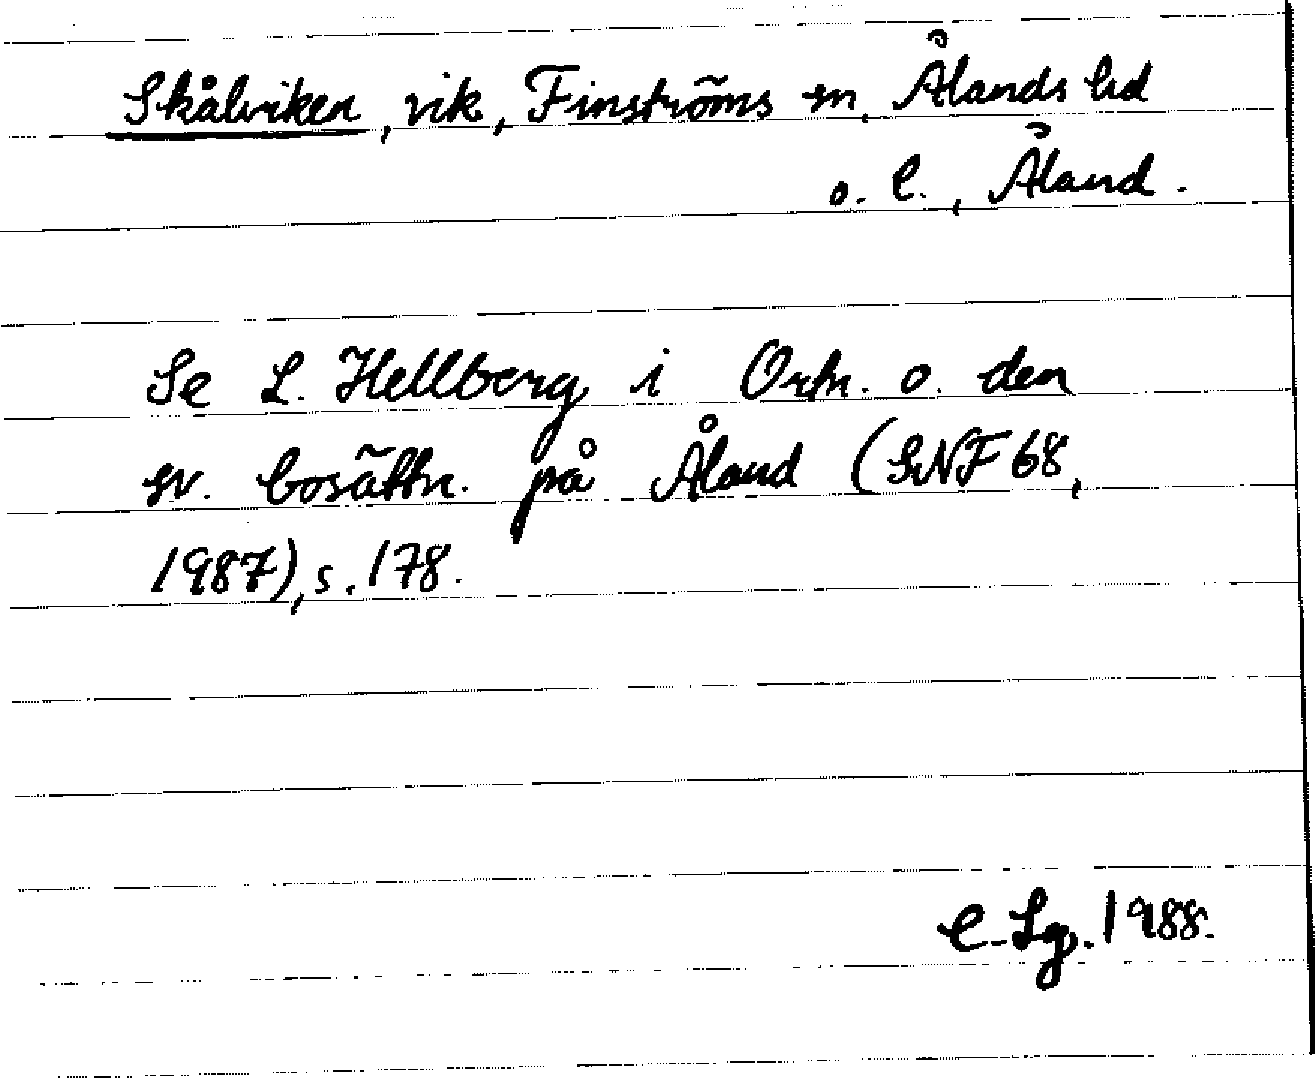 Skålviken, vik, Finströms sn, Ålands hd
o. l., Åland.
Se L. Hellberg i Ortn. o. den
sv. bosättn. på Åland (SNF 68,
1987), s. 178.
C-Lg. 1988.